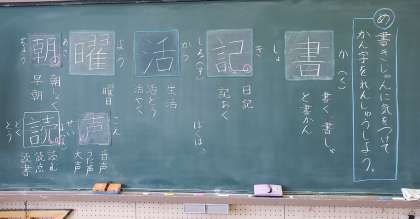 め 書きじゅんに気をつけて
かん字をれんしゅうしよう。
しょ
か(く)
書
書く 書しゃ
と書かん
き
しる(す)
記
日記
記おく
かつ
活
生活
活どう
活やく
よう
曜
曜日
ちょう
あさ
朝
朝しょく
早朝
せい
こえ
声
音声
うた声
大声
どく
とう
よ(む)
読
読む
読点
読書